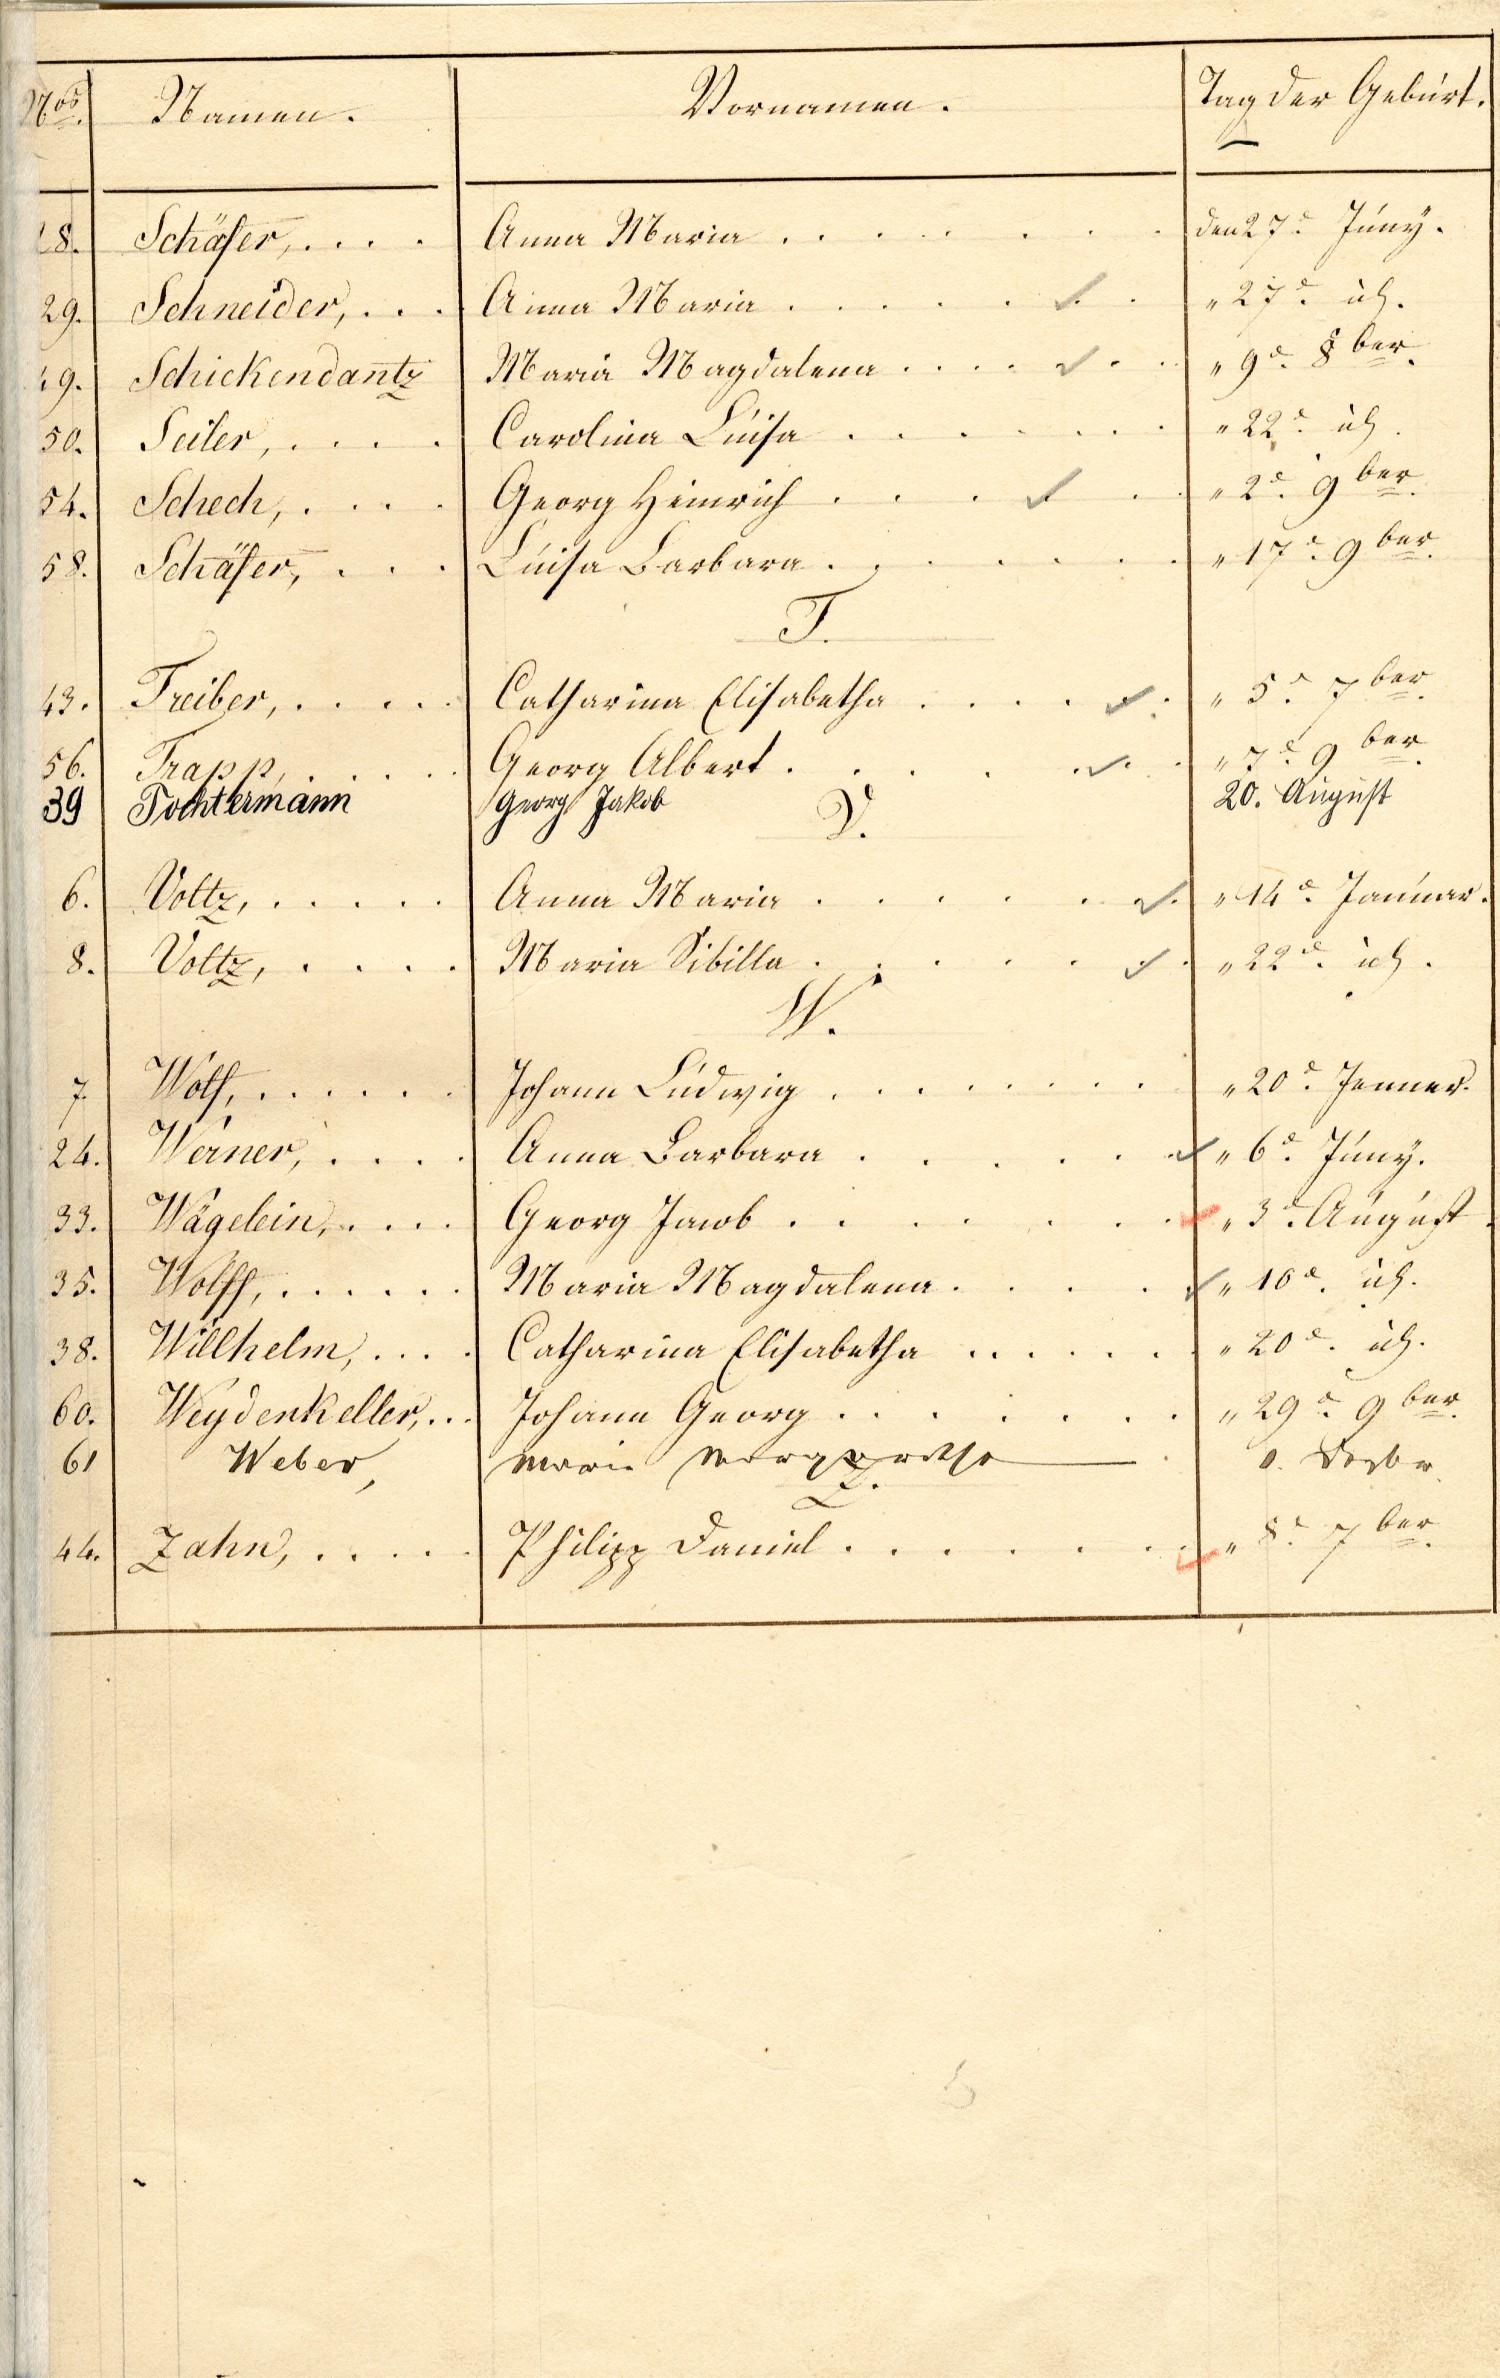 Nos. Namen. Vornamen. Tag der Geburt.
8. Schäfer, . . . . Anna Maria . . . . . . . den 27e. Juny.
29. Schneider, . . . Anna Maria . . . . . . . " 27e. id.
9. Schickendantz Maria Magdalena . . . . . . " 9e. 8ber.
50. Seiler, . . . . Carolina Luisa . . . . . . " 22e. id.
54. Schech, . . . . Georg Heinrich . . . . . . " 2e. 9ber.
58. Schäfer, . . . Luisa Barbara . . . . . . . " 17e. 9ber.
T.
43. Treiber, . . . . . Catharina Elisabetha . . . . . " 5e. 7ber.
56. Trapp, . . . . . Georg Albert . . . . . . . " 7e. 9ber.
39 Tochtermann Georg Jakob 20. August
V.
6. Voltz, . . . . . Anna Maria . . . . . . . " 14e. Januar.
8. Voltz, . . . . Maria Sibilla . . . . . . . " 22e. id.
W.
7. Wolf, . . . . . . Johann Ludwig . . . . . . . " 20e. Jenner.
24. Werner, . . . . Anna Barbara . . . . . . " 6e. Juny.
33. Wägelein, . . . . Georg Jacob . . . . . . . " 3e. August.
35. Wolff, . . . . . . Maria Magdalena . . . . " 10e. id.
38. Willhelm, . . . . Catharina Elisabetha . . . . . " 20e. id.
60. Weydenkeller, . . . Johann Georg . . . . . . . " 29e. 9ber.
61 Weber, Maria Margaretha
Z.
44. Zahn, . . . . . Philipp Daniel . . . . . . . " 8e. 7ber.